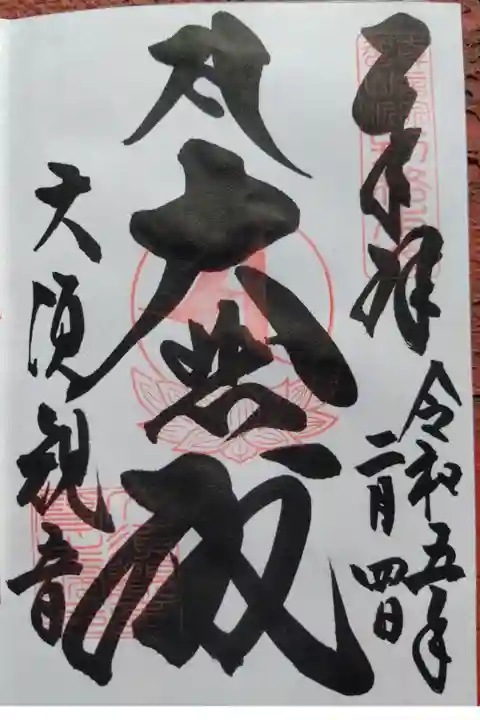 奉拝
令和五年
二月四日
大悲殿
大須観音